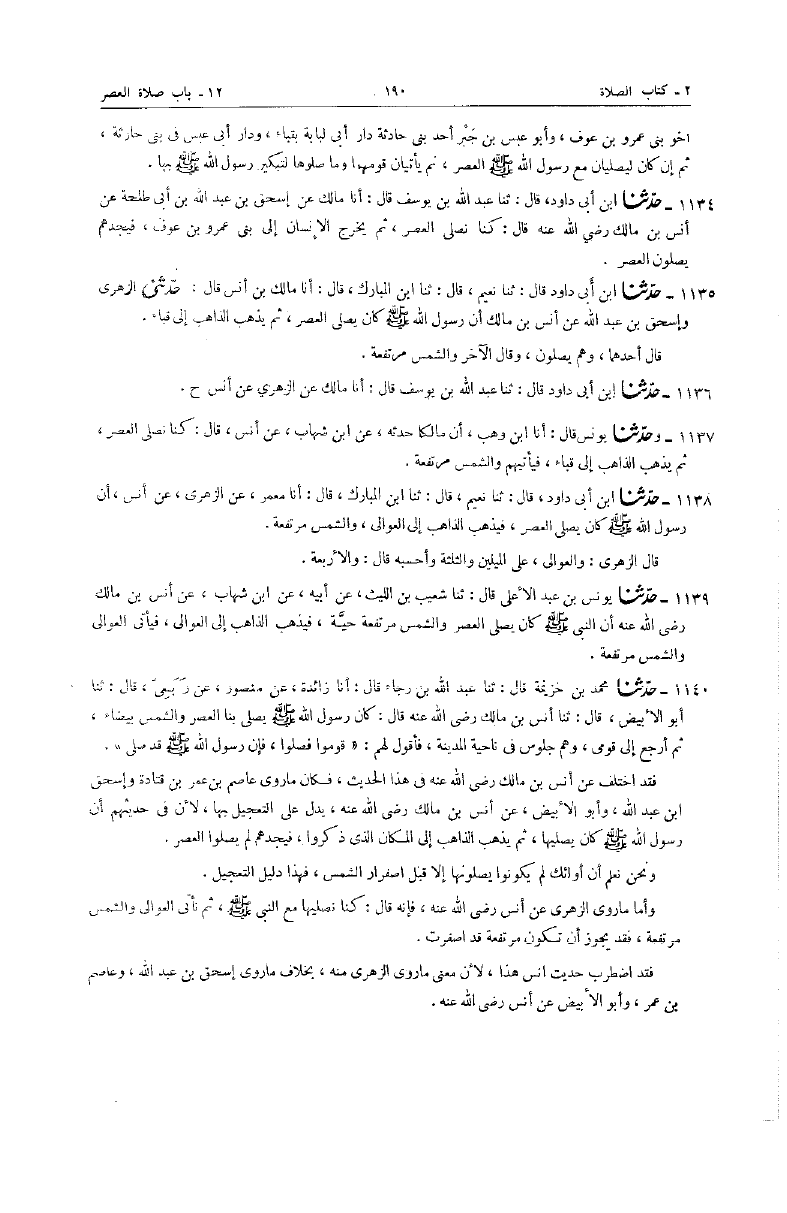 ٢ - كتاب الصلاة ١٩٠ ١٢ - باب صلاة العصر
اخو بنى عمرو بن عوف ، وأبو عبس بن جَبْر أحد بنى حادثة دار أبى لبابة بقباء ، ودار أبى عبس فى بنى حارثة ،
ثم إن كان ليصليان مع رسول الله ﷺ العصر ، ثم يأتيان قومهما وما صلوها لتبكير رسول الله ﷺ بها .
١١٣٤ - حدّثنا ابن أبى داود، قال : ثنا عبد الله بن يوسف قال : أنا مالك عن إسحق بن عبد الله بن أبى طلحة عن
أنس بن مالك رضي الله عنه قال : كنا نصلى العصر ، ثم يخرج الإنسان إلى بنى عمرو بن عوف ، فيجدهم
يصلون العصر .
١١٣٥ - حدّثنا ابن أبى داود قال : ثنا نعيم ، قال : ثنا ابن المبارك ، قال : أنا مالك بن أنس قال : حدّثنى الزهرى
وإسحق بن عبد الله عن أنس بن مالك أن رسول الله ﷺ كان يصلى العصر ، ثم يذهب الذاهب إلى قباء .
قال أحدها ، وهم يصلون ، وقال الآخر والشمس مرتفعة .
١١٣٦ - حدّثنا ابن أبى داود قال : ثنا عبد الله بن يوسف قال : أنا مالك عن الزهري عن أنس ح .
١١٣٧ - وحدّثنا يونس قال : أنا ابن وهب ، أن مالكا حدثه ، عن ابن شهاب ، عن أنس ، قال : كنا نصلى العصر ،
ثم يذهب الذاهب إلى قباء ، فيأتيهم والشمس مرتفعة .
١١٣٨ - حدّثنا ابن أبى داود ، قال : ثنا نعيم ، قال : ثنا ابن المبارك ، قال : أنا معمر ، عن الزهرى ، عن أنس ، أن
رسول الله ﷺ كان يصلى العصر ، فيذهب الذاهب إلى العوالى ، والشمس مرتفعة .
قال الزهرى : والعوالى ، على الميلين والثلثة وأحسبه قال : والأربعة .
١١٣٩ - حدّثنا يونس بن عبد الأعلى قال : ثنا شعيب بن الليث ، عن أبيه ، عن ابن شهاب ، عن أنس بن مالك
رضى الله عنه أن النبي ﷺ كان يصلي العصر والشمس مرتفعة حيَّة ، فيذهب الذاهب إلى العوالى ، فيأتى العوالى
والشمس مرتفعة .
١١٤٠ - حدّثنا محمد بن خزيمة قال : ثنا عبد الله بن رجاء قال : أنا زائدة ، عن منصور ، عن رِبْعِىّ ، قال : ثنا
أبو الأبيض ، قال : ثنا أنس بن مالك رضى الله عنه قال : كان رسول الله ﷺ يصلي بنا العصر والشمس بيضاء ،
ثم أرجع إلى قومى ، وهم جلوس فى ناحية المدينة ، فأقول لهم : « قوموا فصلوا ، فإن رسول الله ﷺ قد صلى » .
فقد اختلف عن أنس بن مالك رضى الله عنه فى هذا الحديث ، فكان ماروى عاصم بن عمر بن قتادة وإسحق
ابن عبد الله ، وأبو الأبيض ، عن أنس بن مالك رضى الله عنه ، يدل على التعجيل بها ، لأن فى حديثهم أن
رسول الله ﷺ كان يصليها ، ثم يذهب الذاهب إلى المكان الذى ذكروا ، فيجدهم لم يصلوا العصر .
ونحن نعلم أن أولئك لم يكونوا يصلونها إلا قبل اصفرار الشمس ، فهذا دليل التعجيل .
وأما ماروى الزهرى عن أنس رضى الله عنه ، فإنه قال : كنا نصليها مع النبي ﷺ ، ثم نأتى العوالى والشمس
مرتفعة ، فقد يجوز أن تكون مرتفعة قد اصفرت .
فقد اضطرب حديث انس هذا ، لأن معنى ماروى الزهرى منه ، بخلاف ماروى إسحق بن عبد الله ، وعاصم
بن عمر ، وأبو الأبيض عن أنس رضى الله عنه .